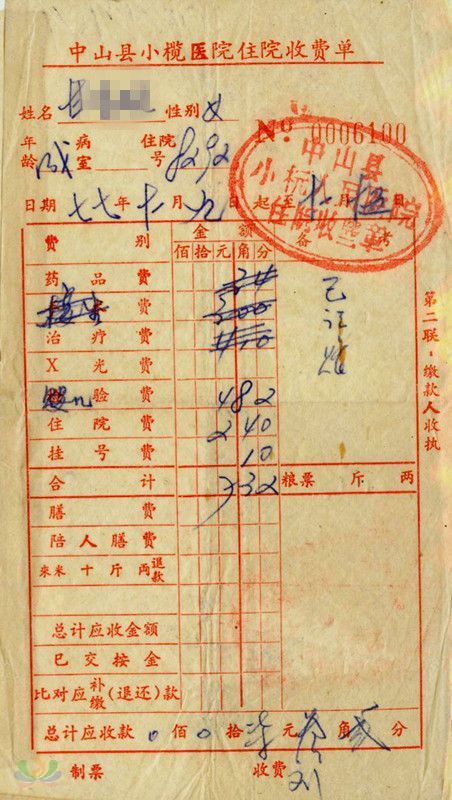 中山县小榄医院住院收费单
姓名 性别 女
No 0006100
年龄 成 病室 住院号 8292
日期 七七年十一月九日起至十一月 日
中山县
住院收费
费别 金额 备
佰拾元角分
药品费
费 300
治疗费
X光费
验费 482
住院费 240
挂号费 10
合计 732 粮票 斤 两
已
第二联·缴款人收执
膳费
陪人膳费
来米十斤两退款
总计应收金额
已交按金
比对应补缴(退还)款
总计应收款 0佰0拾柒元叁角贰分
制票 收费 刘